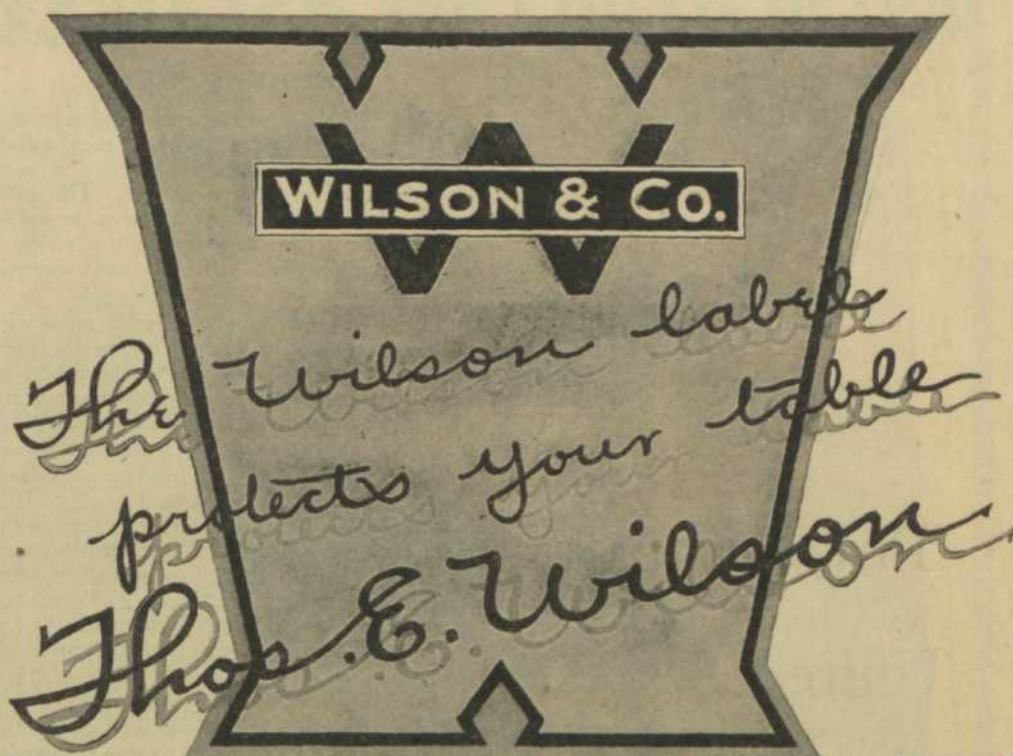 WILSON & CO.
The Wilson label
protects your table
Thos. E. Wilson